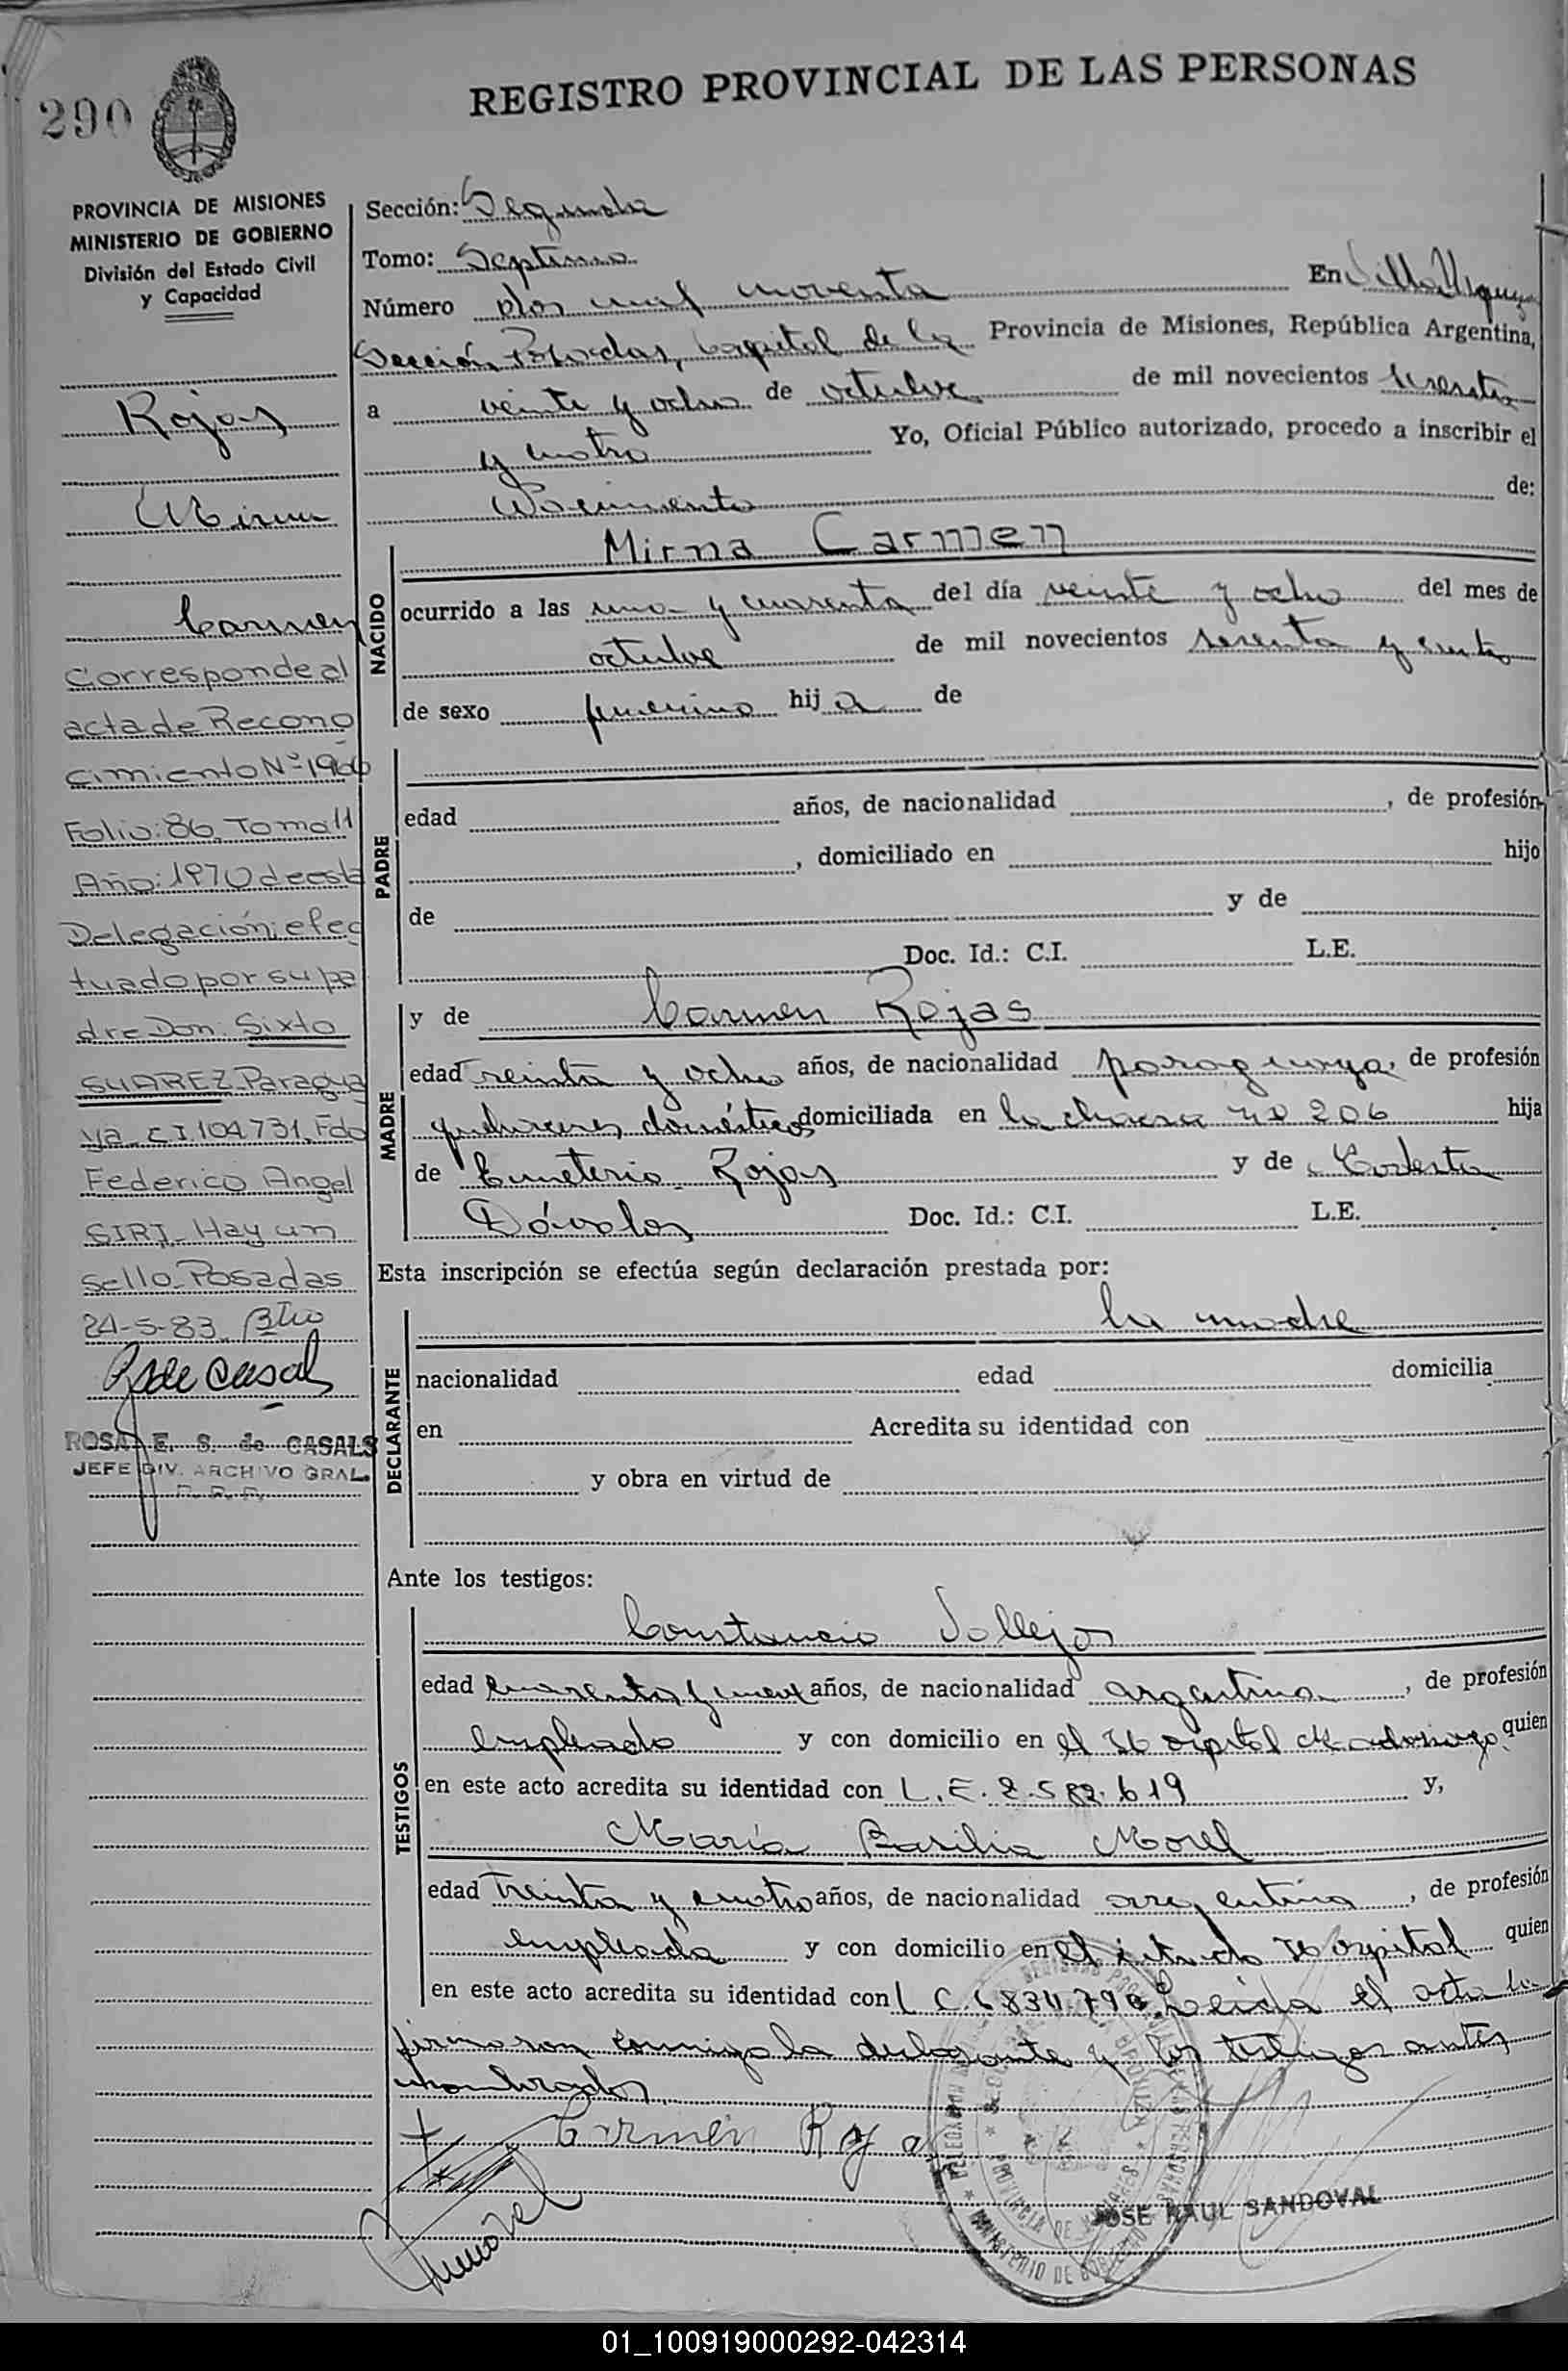 290
REGISTRO PROVINCIAL DE LAS PERSONAS
PROVINCIA DE MISIONES
MINISTERIO DE GOBIERNO
División del Estado Civil
y Capacidad
Rojas
Mirna
Carmen
Corresponde al
acta de Recono
cimiento Nº 1966
Folio: 86, Tomo II
Año: 1970 de esta
Delegación; efec
tuado por su pa
dre Don: Sixto
SUAREZ, Paragua
ya C.I. 104.731. Fdo
Federico Angel
SIRI. Hay un
Sello. Posadas
24-5-83.
ROSA E. S. de CASALS
JEFE DIV. ARCHIVO GRAL.
R. P. P.
Sección: Segunda
Tomo: Septimo
Número dos mil noventa En Villa Urquiza
Sección Posadas, Capital de la Provincia de Misiones, República Argentina,
a veinte y ocho de octubre de mil novecientos sesenta
y cuatro Yo, Oficial Público autorizado, procedo a inscribir el
Nacimiento de:
NACIDO
Mirna Carmen
ocurrido a las una y cuarenta del día veinte y ocho del mes de
octubre de mil novecientos sesenta y cuatro
de sexo femenino hija de
PADRE
edad años, de nacionalidad , de profesión
, domiciliado en hijo
de y de
Doc. Id.: C.I. L.E.
MADRE
y de Carmen Rojas
edad treinta y ocho años, de nacionalidad paraguaya, de profesión
quehaceres domésticos domiciliada en la chacra nº 206 hija
de Emeterio Rojas y de
Dávalos Doc. Id.: C.I. L.E.
Esta inscripción se efectúa según declaración prestada por:
DECLARANTE
la madre
nacionalidad edad domicilia
en Acredita su identidad con
y obra en virtud de
Ante los testigos:
TESTIGOS
Constancio Vallejos
edad cuarenta y nueve años, de nacionalidad argentina, de profesión
empleado y con domicilio en el Hospital Madariaga, quien
en este acto acredita su identidad con L.E. 2.582.619 y,
María Basilia Morel
edad treinta y cuatro años, de nacionalidad argentina, de profesión
empleada y con domicilio en el citado Hospital quien
en este acto acredita su identidad con L C 6 834.790. Leida el acta la
firmaron conmigo la declarante y los testigos antes
nombrados
Carmen Rojas
JOSE RAUL SANDOVAL
01_100919000292-042314